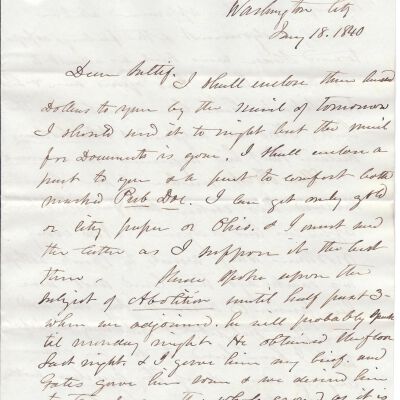 Washington City
Jany 18. 1840
Dear I shall enclose three hund
Dollars to you by the mail of tomorrow
I should send it to night but the mail
for Documents is gone. I shall enclose a
part to you & a part to Comfort both
marked Pub Doc. I can get only gold
or City paper or Ohio. & I must send
the latter as I suppose it the best
time. Slade spoke upon the
subject of Abolition until half past 3-
when we adjourned. he will probably speak
til monday night He obtained the floor
last night. & I gave him my brief. and
Gates gave him some & we desired him
to the whole ground as it is